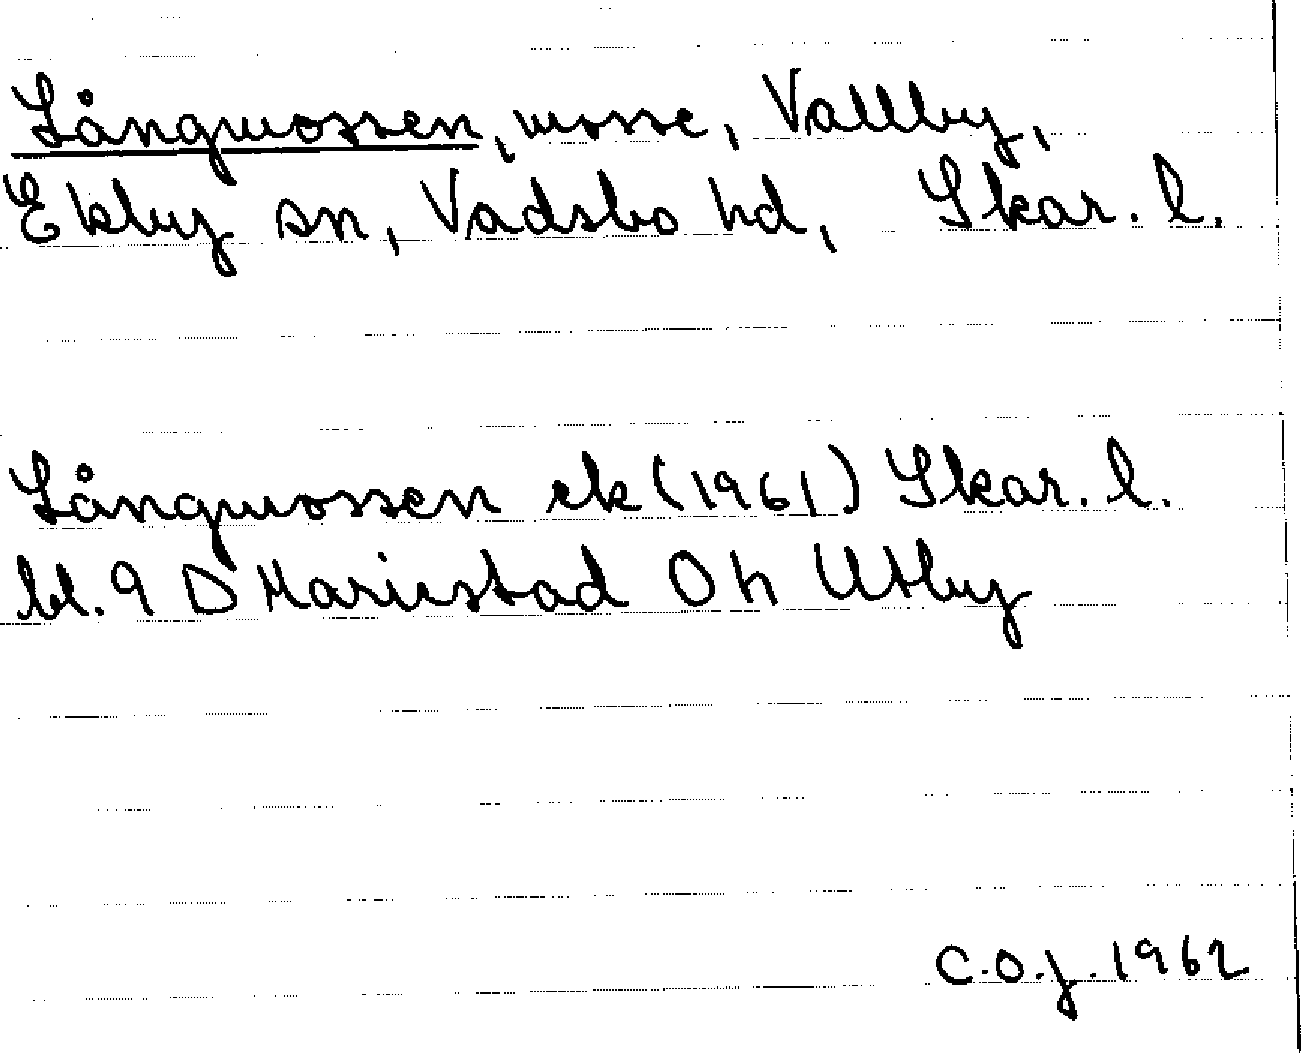 Långmossen, mosse, Vallby,
Ekby sn, Vadsbo hd, Skar. l.
Långmossen ek (1961) Skar. l.
bl. 9 D Mariestad Oh Utby
C.O.J. 1962